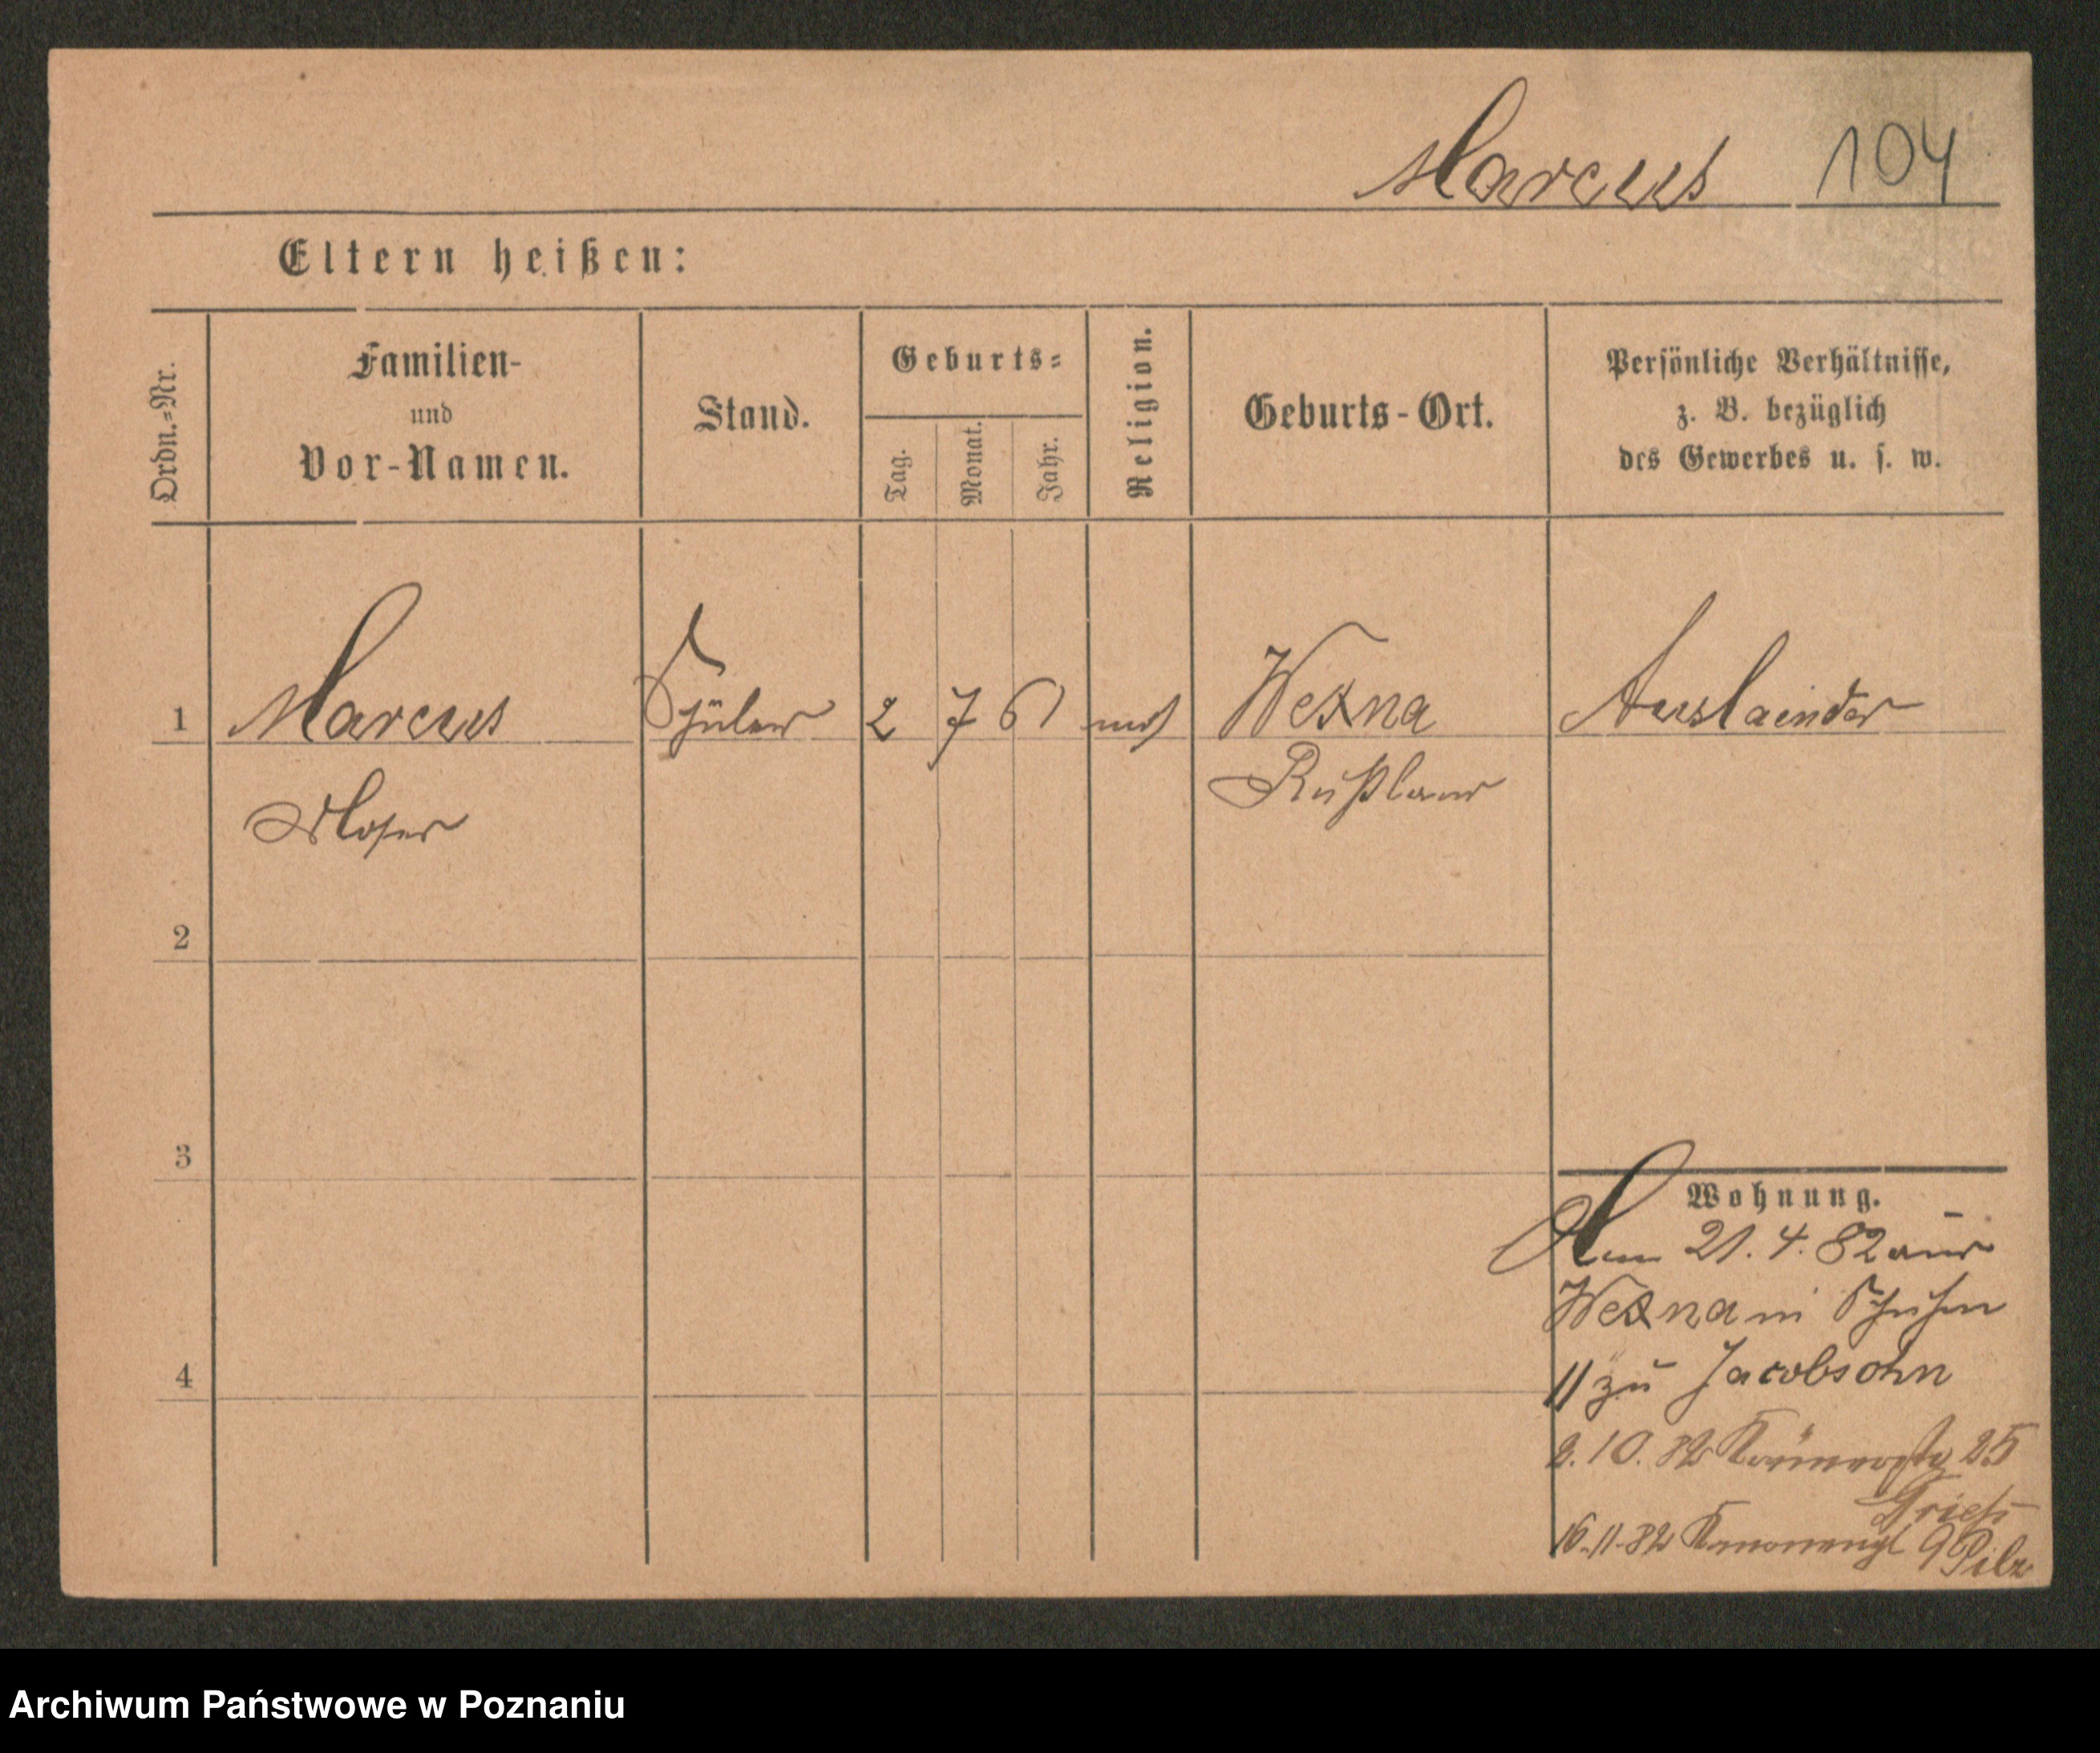 Marcus 104
Eltern heißen:
Ordn.=Nr.
Familien-
und
Vor-Namen.
Stand.
Geburts=
Tag.
Monat.
Jahr.
Religion.
Geburts-Ort.
Persönliche Verhältnisse,
z. B. bezüglich
des Gewerbes u. s. w.
1 Marcus Schüler 2 7 61 mos Wexna Auslaender
Moses Rußland
2
3
4
Wohnung.
Am 21. 4. 82 aus
Wexna in
11 zu Jacobsohn
2. 10. 82 25
16.11.82 9 Pilz
Archiwum Państwowe w Poznaniu